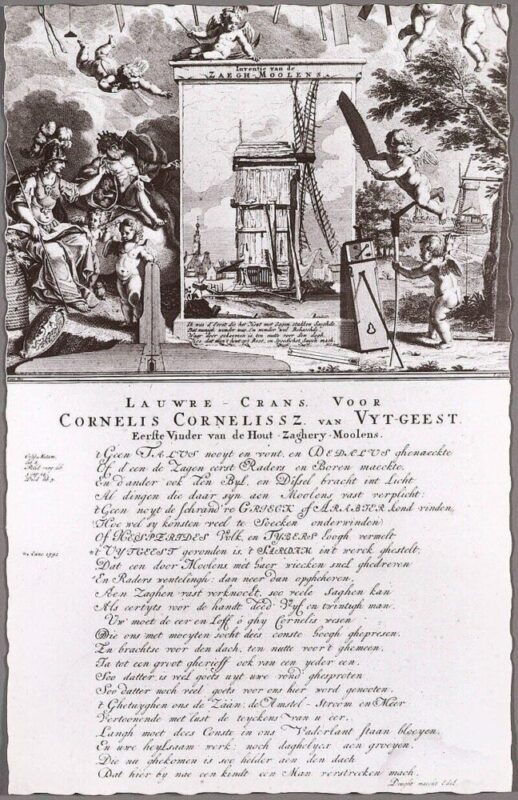 Inventie van de
ZAEGH-MOOLENS.
Ik was d'Eerst die het Hout met Sagen stukken
LAUWRE-CRANS. VOOR
CORNELIS CORNELISSZ. VAN VYT-GEEST.
Eerste Vinder van de Hout-Zaghery-Moolens.
't Geen TALUS nooyt en vont, en DEDALUS ghenaeckte
Of d'een de Zagen eerst Raders en Boren maeckte.
En d'ander ook den Byl, en Dissel bracht int Licht
Al dingen die daar syn aen Moolens vast verplicht:
't Geen noyt de schrandre GRIECK of ARABIER kond vinden,
Hoe wel sy konsten veel te Soecken onderwinden
Of HESPERIDES Volk, en TYBERS hoogh vermelt
't VYTGEEST geronden is, 't SARDAM in't werck ghestelt;
Dat een door Moolens met haer wiecken snel ghedreven
En Raders wentelingh, dan neer dan opgheheven.
Aen Zaghen vast verknocht, soo veele Saghen kan
Als eertyts voor de handt deed Vyf en twintigh man.
Uw' moet de eer en Loff, ô ghy Cornelis wesen
Die ons met mooyten socht dees conste hoogh ghepresen.
En brachtse voor den dach, ten nutte voor 't ghemeen,
Ja tot een groot gherieff ook van een yeder een.
Soo datter is veel goets uyt uwe vond ghesproten
Soo datter noch veel goets voor ons hier word genooten.
't Ghetuyghen ons de Zaan, de Amstel-Stroom en Meer
Vertoonende met lust de teyckens van u eer.
Langh moet dees Conste in ons Vaderlant staan bloeyen,
En uwe heylsaam werk, noch daghelycx aen groeyen.
Die nu ghekomen is soo helder aen den dach
Dat hier by nae een kindt een Man verstrecken mach.